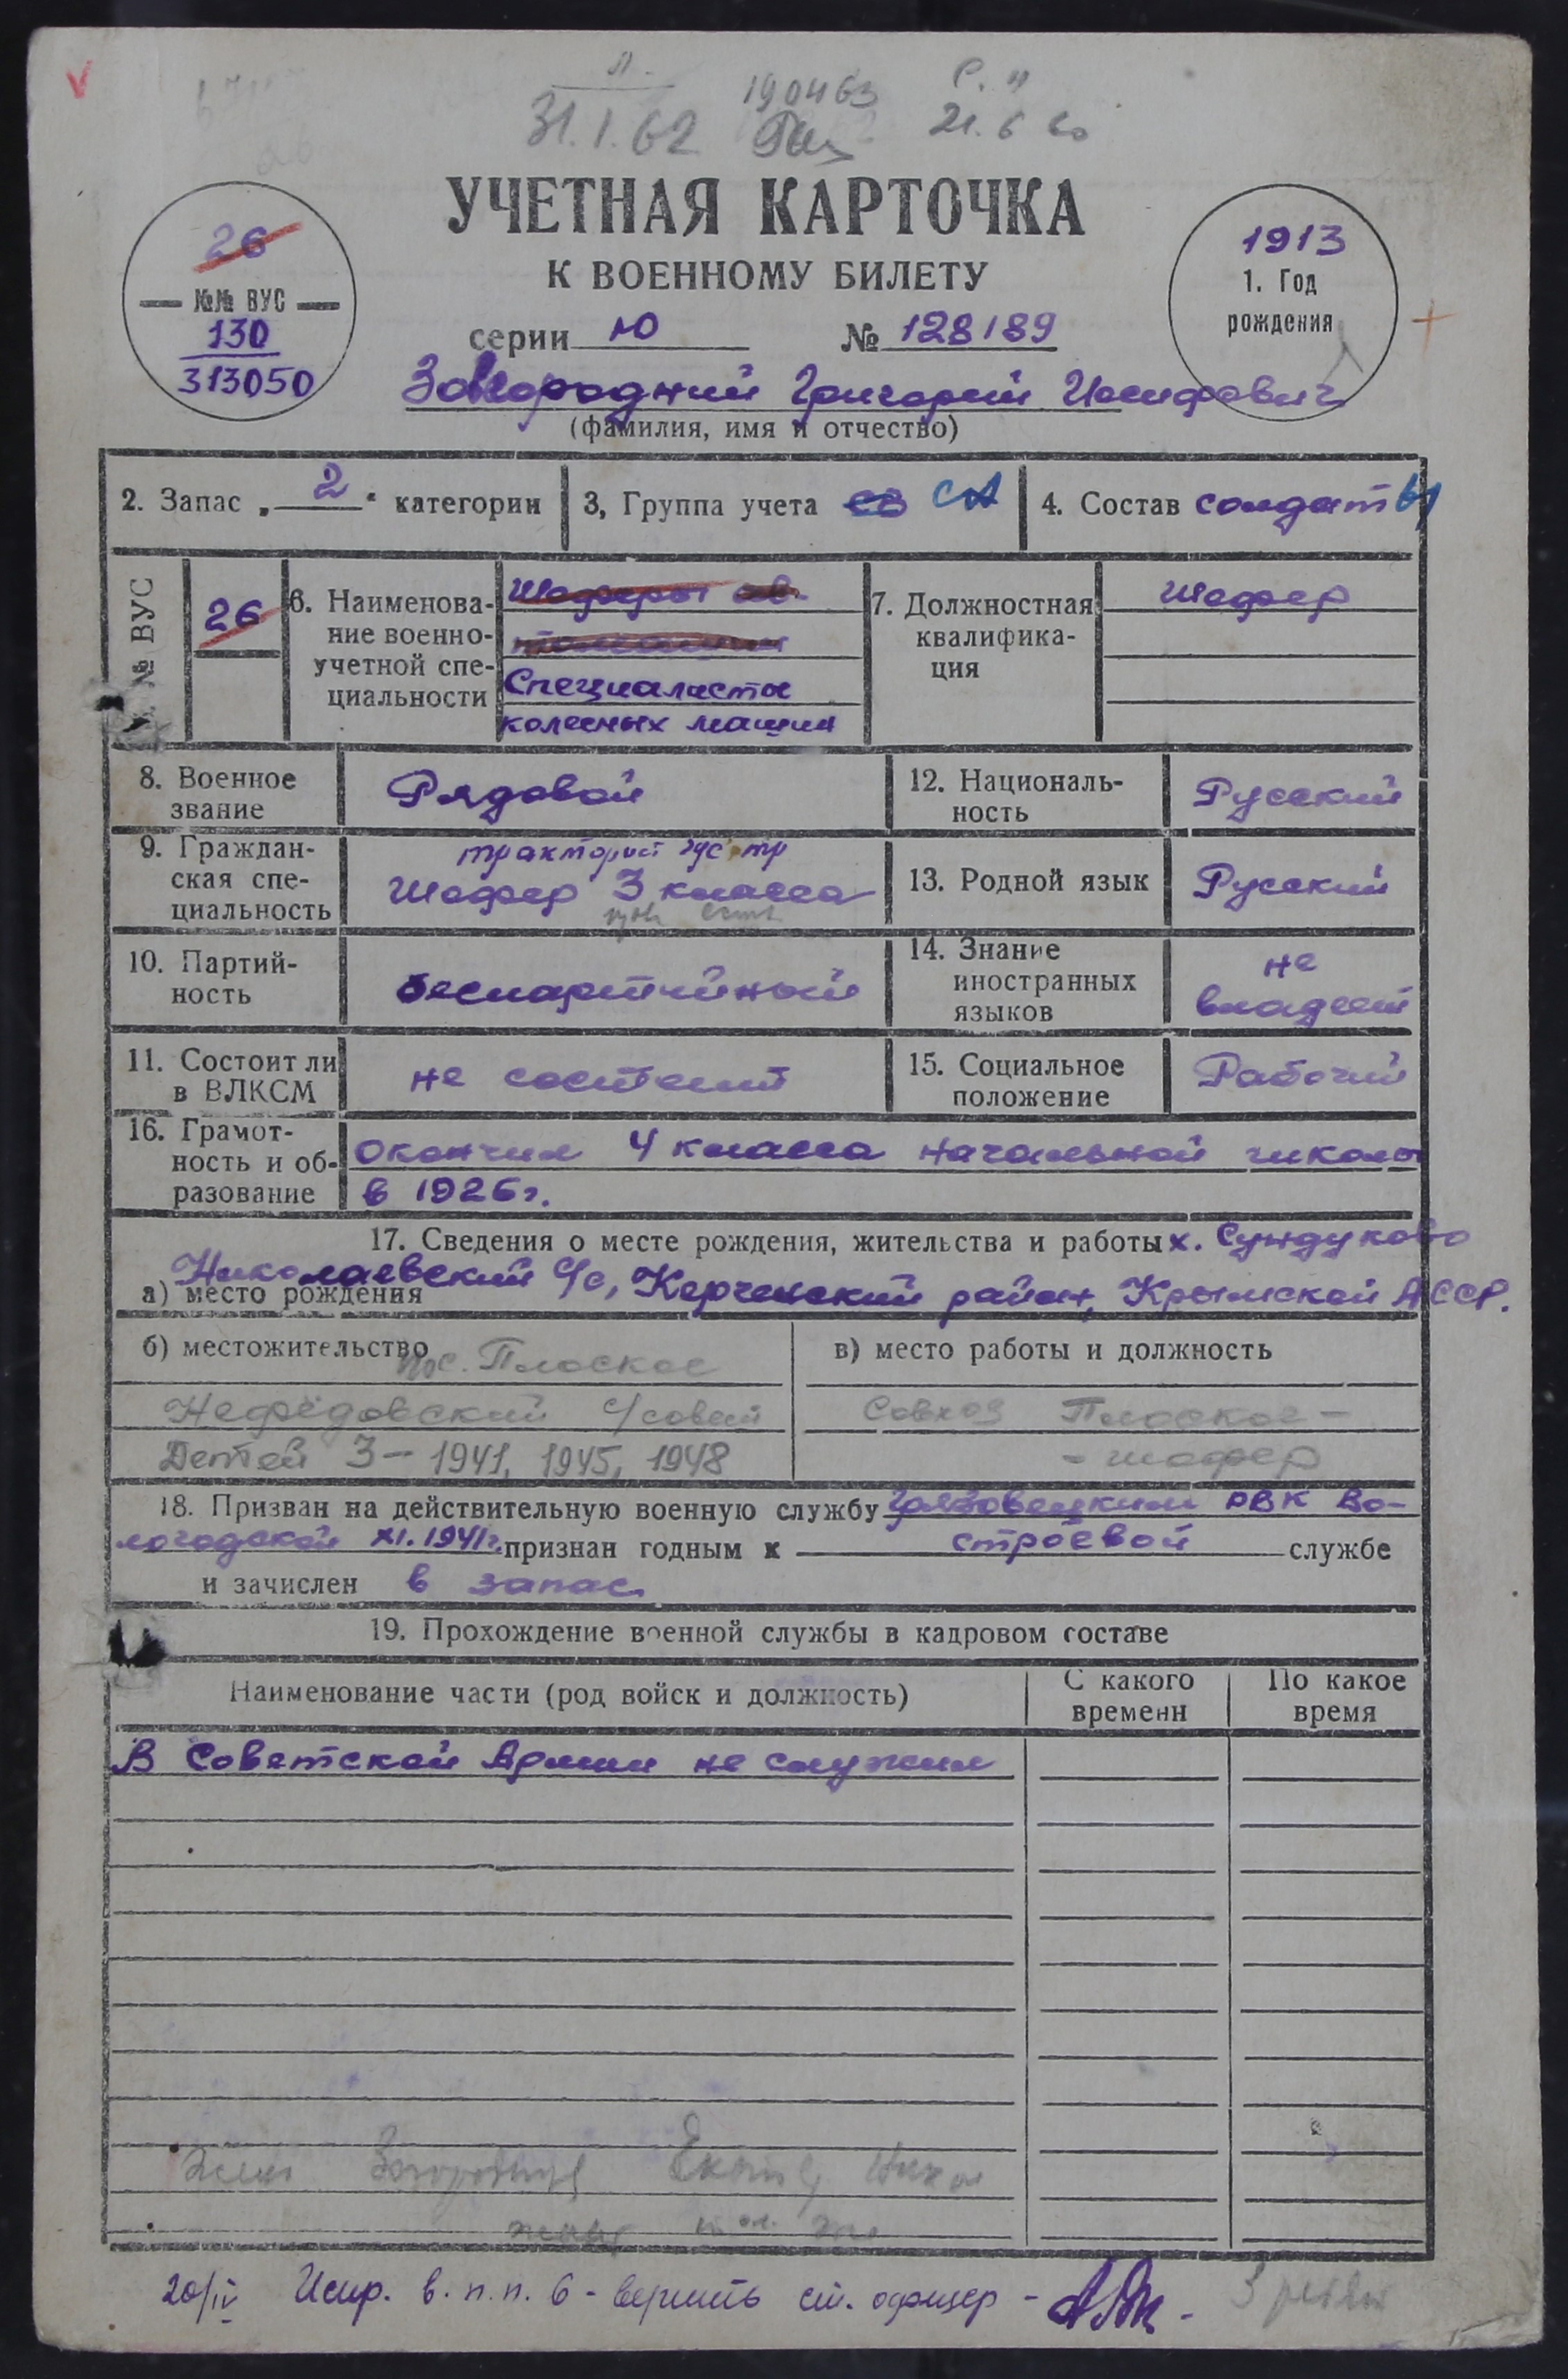 31.I.62 190463 21.6 60
УЧЕТНАЯ КАРТОЧКА
К ВОЕННОМУ БИЛЕТУ
серии Ю № 128189
26
№№ ВУС
130
313050
1913
1. Год
рождения
Завгородний Григорий Иосифович
(фамилия, имя и отчество)
2. Запас „ 2 “ категории 3, Группа учета СВ СА 4. Состав солдат
№ ВУС 26
6. Наименова-
ние военно-
учетной спе-
циальности
Шоферы ав-
Специалисты
колесных машин
7. Должностная
квалифика-
ция
Шофер
8. Военное
звание
Рядовой
12. Националь-
ность
Русский
9. Граждан-
ская спе-
циальность
тракторист гус тр
Шофер 3 класса
13. Родной язык Русский
10. Партий-
ность
беспартийный
14. Знание
иностранных
языков
не
владеет
11. Состоит ли
в ВЛКСМ
не состоит
15. Социальное
положение
Рабочий
16. Грамот-
ность и об-
разование
Окончил 4 класса начальной школы
в 1926г.
17. Сведения о месте рождения, жительства и работы х. Сундуково
Николаевский с/с, Керченский район, Крымской АССР.
а) место рождения
б) местожительство пос. Плоское
Нефёдовский с/совет
Детей 3 – 1941, 1945, 1948
в) место работы и должность
Совхоз Плоское –
– шофер
18. Призван на действительную военную службу Грязовецким РВК Во-
логодской XI.1941г. признан годным к строевой службе
и зачислен в запас
19. Прохождение военной службы в кадровом составе
Наименование части (род войск и должность) С какого
времени По какое
время
В Советской Армии не служил
Жена
20/IV Испр. в. п.п. 6 - верить ст. офицер -